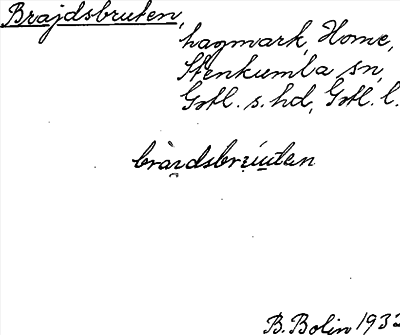 Brajdsbruten,
hagmark, Home,
Stenkumla sn,
Gotl. s. hd, Gotl. l.
bràidsbrèuten
B. Bolin 1932